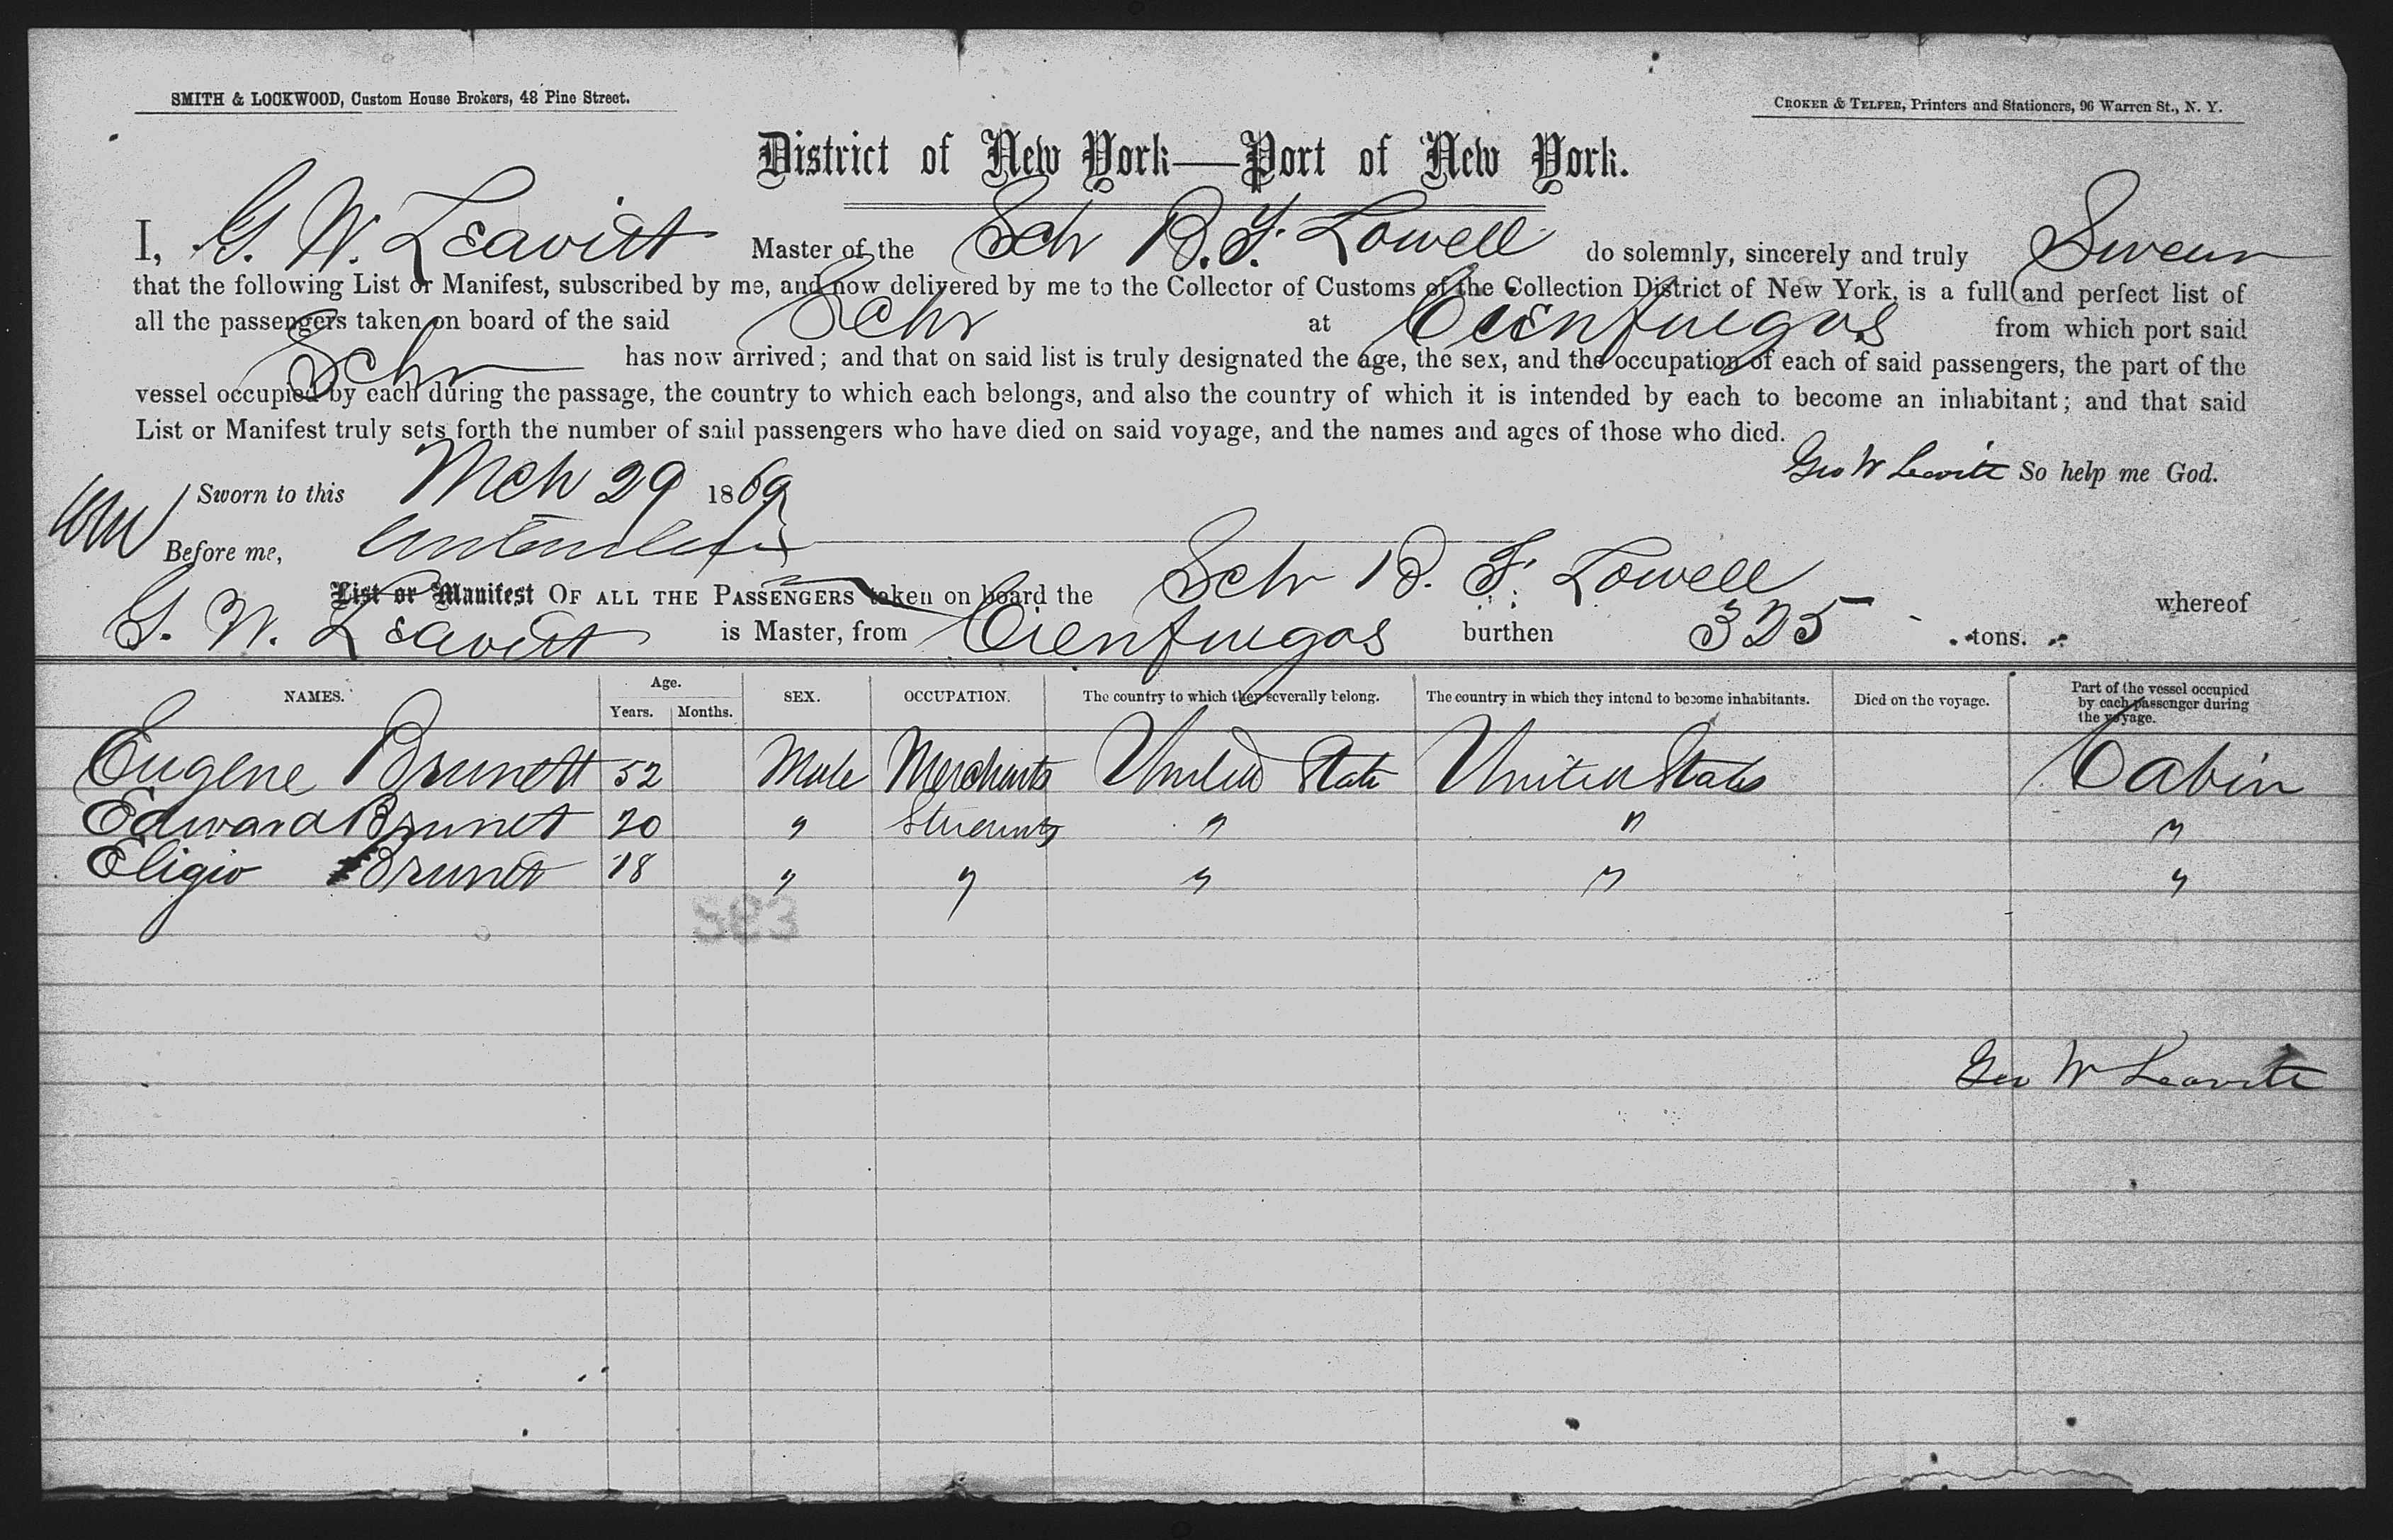 SMITH & LOCKWOOD, Custom House Brokers, 48 Pine Street.
CROKER & TELFER, Printers and Stationers, 96 Warren St., N. Y.
District of New York—Port of New York.
I, G. W. Leavitt Master of the Sch B. F. Lowell do solemnly, sincerely and truly Swear
that the following List or Manifest, subscribed by me, and now delivered by me to the Collector of Customs of the Collection District of New York, is a full and perfect list of
all the passengers taken on board of the said Schr at Cienfuegos from which port said
Schr has now arrived; and that on said list is truly designated the age, the sex, and the occupation of each of said passengers, the part of the
vessel occupied by each during the passage, the country to which each belongs, and also the country of which it is intended by each to become an inhabitant; and that said
List or Manifest truly sets forth the number of said passengers who have died on said voyage, and the names and ages of those who died.
Geo W Leavitt So help me God.
Sworn to this Mch 29 1869
Before me,
List or Manifest OF ALL THE PASSENGERS taken on board the Schr B. F. Lowell whereof
G. W. Leavitt is Master, from Cienfuegos burthen 325 tons.
NAMES. Age. Years. Months. SEX. OCCUPATION. The country to which they severally belong. The country in which they intend to become inhabitants. Died on the voyage. Part of the vessel occupied by each passenger during the voyage.
Eugene Brunett 52 Male Merchants United State United States Cabin
Edward Brunet 20 " Students " " "
Eligio Brunet 18 " " " " "
583
Geo W Leavitt